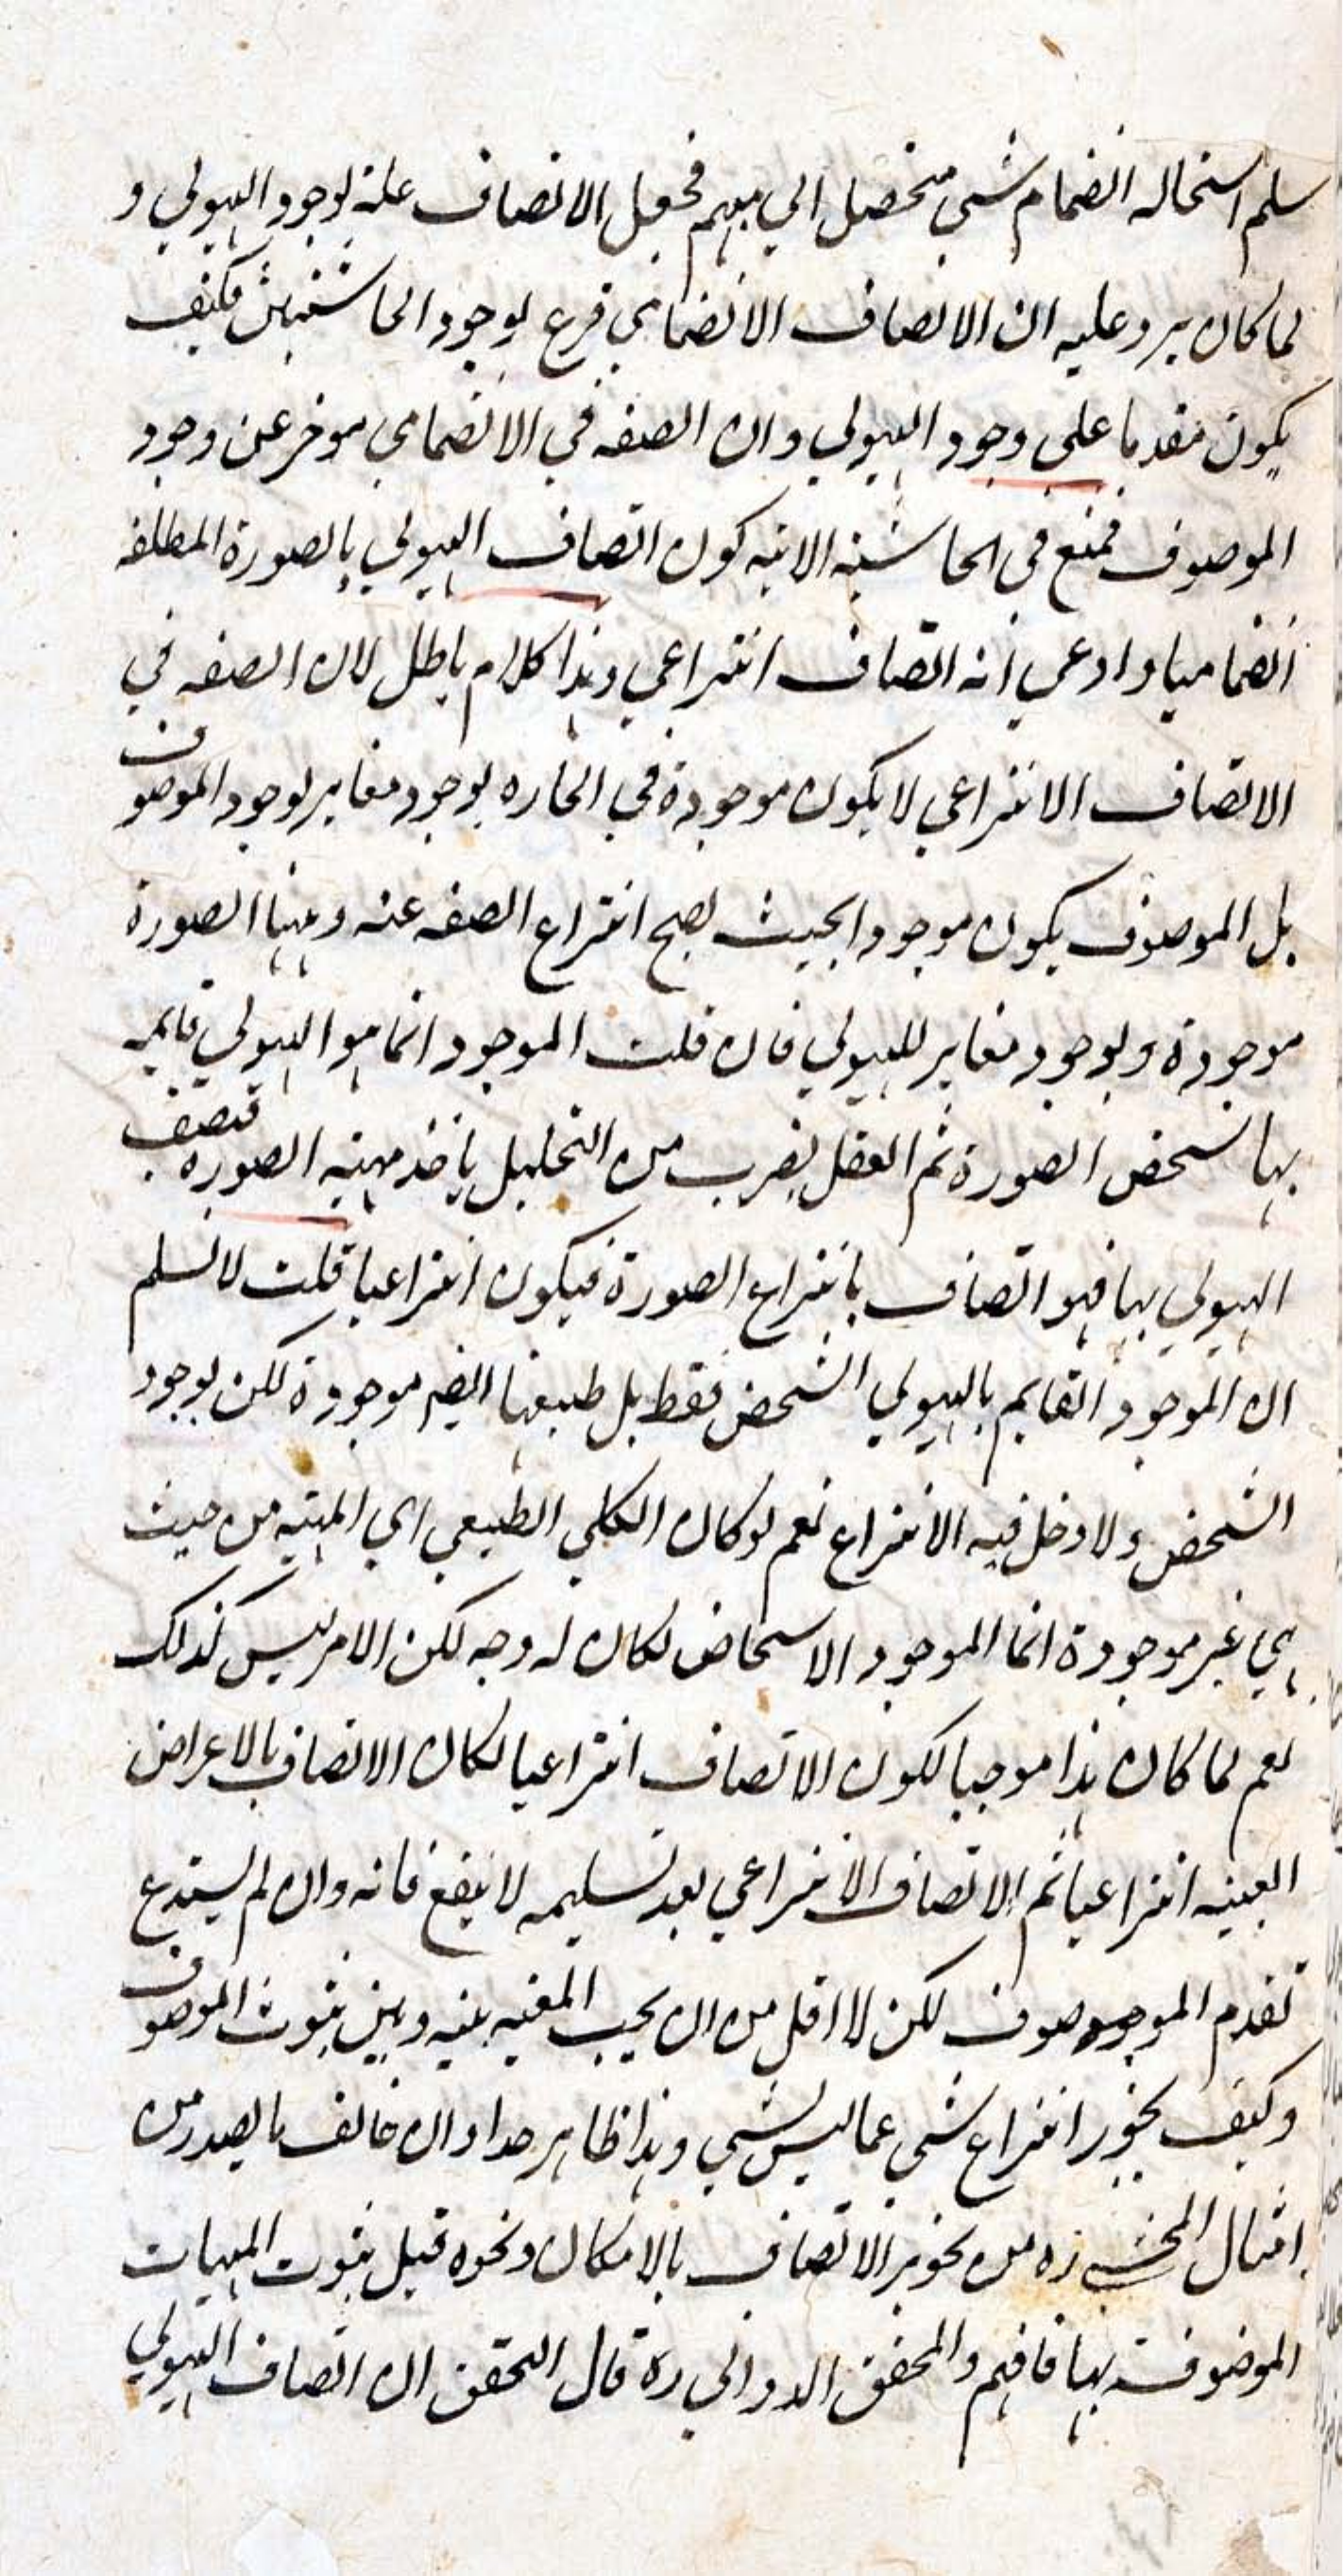 سلم استحاله انضمام شي متحصل الي مبهم فجعل الاتصاف علة لوجود الهيولي و
لما كان يرد عليه ان الاتصاف الانضمامي فرع لوجود الحاشيتين فكيف
يكون متقدما على وجود الهيولي وان الصفه في الانضمامي موخر عن وجود
الموصوف فمنع في الحاشيه الاتيه كون اتصاف الهيولي بالصورة المطلقه
انضماميا وادعي انه اتصاف انتزاعي وهذا كلام باطل لان الصفه في
الاتصاف الانتزاعي لا يكون موجودة في الخارج بوجود مغاير لوجود الموصوف
بل الموصوف يكون موجودا بحيث يصح انتزاع الصفه عنه وههنا الصورة
موجودة وبوجود مغاير للهيولي فان قلت الموجود انما هو الهيولي قايمه
بها شخص الصورة ثم العقل بضرب من التحليل ياخذ مهيه الصوره فتصف
الهيولي بها فهو اتصاف بانتزاع الصورة فيكون انتزاعيا قلت لا نسلم
ان الموجود القايم بالهيولي الشخص فقط بل طبيعتها ايضا موجودة لكن بوجود
الشخص ولا دخل فيه الانتزاع نعم لو كان الكلي الطبيعي اي المهيه من حيث
هي غير موجودة انما الموجود الاشخاص لكان له وجه لكن الامر ليس كذلك
نعم لما كان هذا موجبا لكون الاتصاف انتزاعيا لكان الاتصاف بالاعراض
العينيه انتزاعيا ثم الاتصاف الانتزاعي بعد تسليمه لا ينفع فانه وان لم يستدع
تقدم الموصوف لكن لا اقل من ان يجب المعيه بينه وبين ثبوت الموصوف
وكيف يجوز انتزاع شي عما ليس بشي وهذا ظاهر جدا وان خالف ما يصدر من
امثال المحشي ره من تجويز الاتصاف بالامكان ونحوه قبل ثبوت المهيات
الموصوفة بها فافهم والمحقق الدواني ره قال التحقق ان اتصاف الهيولي